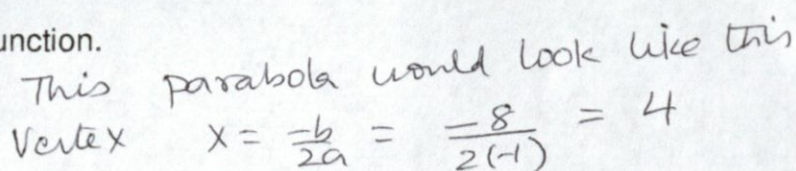 unction.
This parabola would look like this
Vertex x = -b/2a = -8/2(-1) = 4